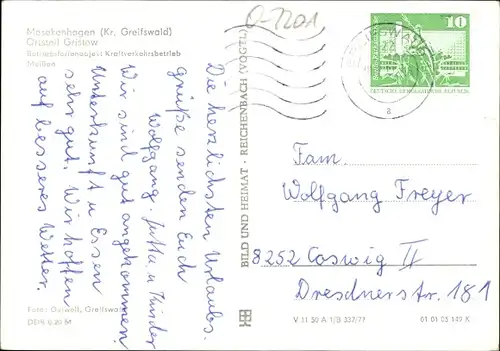 O-7201
Mesekenhagen (Kr. Greifswald)
Ortsteil Gristow
Betriebsferienobjekt Kraftverkehrsbetrieb
Meißen
Die herzlichsten Urlaubs-
grüße senden Euch
Wolfgang, Jutta u. Kinder
Wir sind gut angekommen.
Unterkunft u. Essen
sehr gut. Wir hoffen
auf besseres Wetter.
Foto: Outwell, Greifswald
DDR 0,20 M
BILD UND HEIMAT · REICHENBACH (VOGTL)
10
DEUTSCHE DEMOKRATISCHE REPUBLIK
a
Fam.
Wolfgang Freyer
8252 Coswig II
Dresdnerstr. 181
V 11 50 A 1/B 337/77
01 01 05 149 K